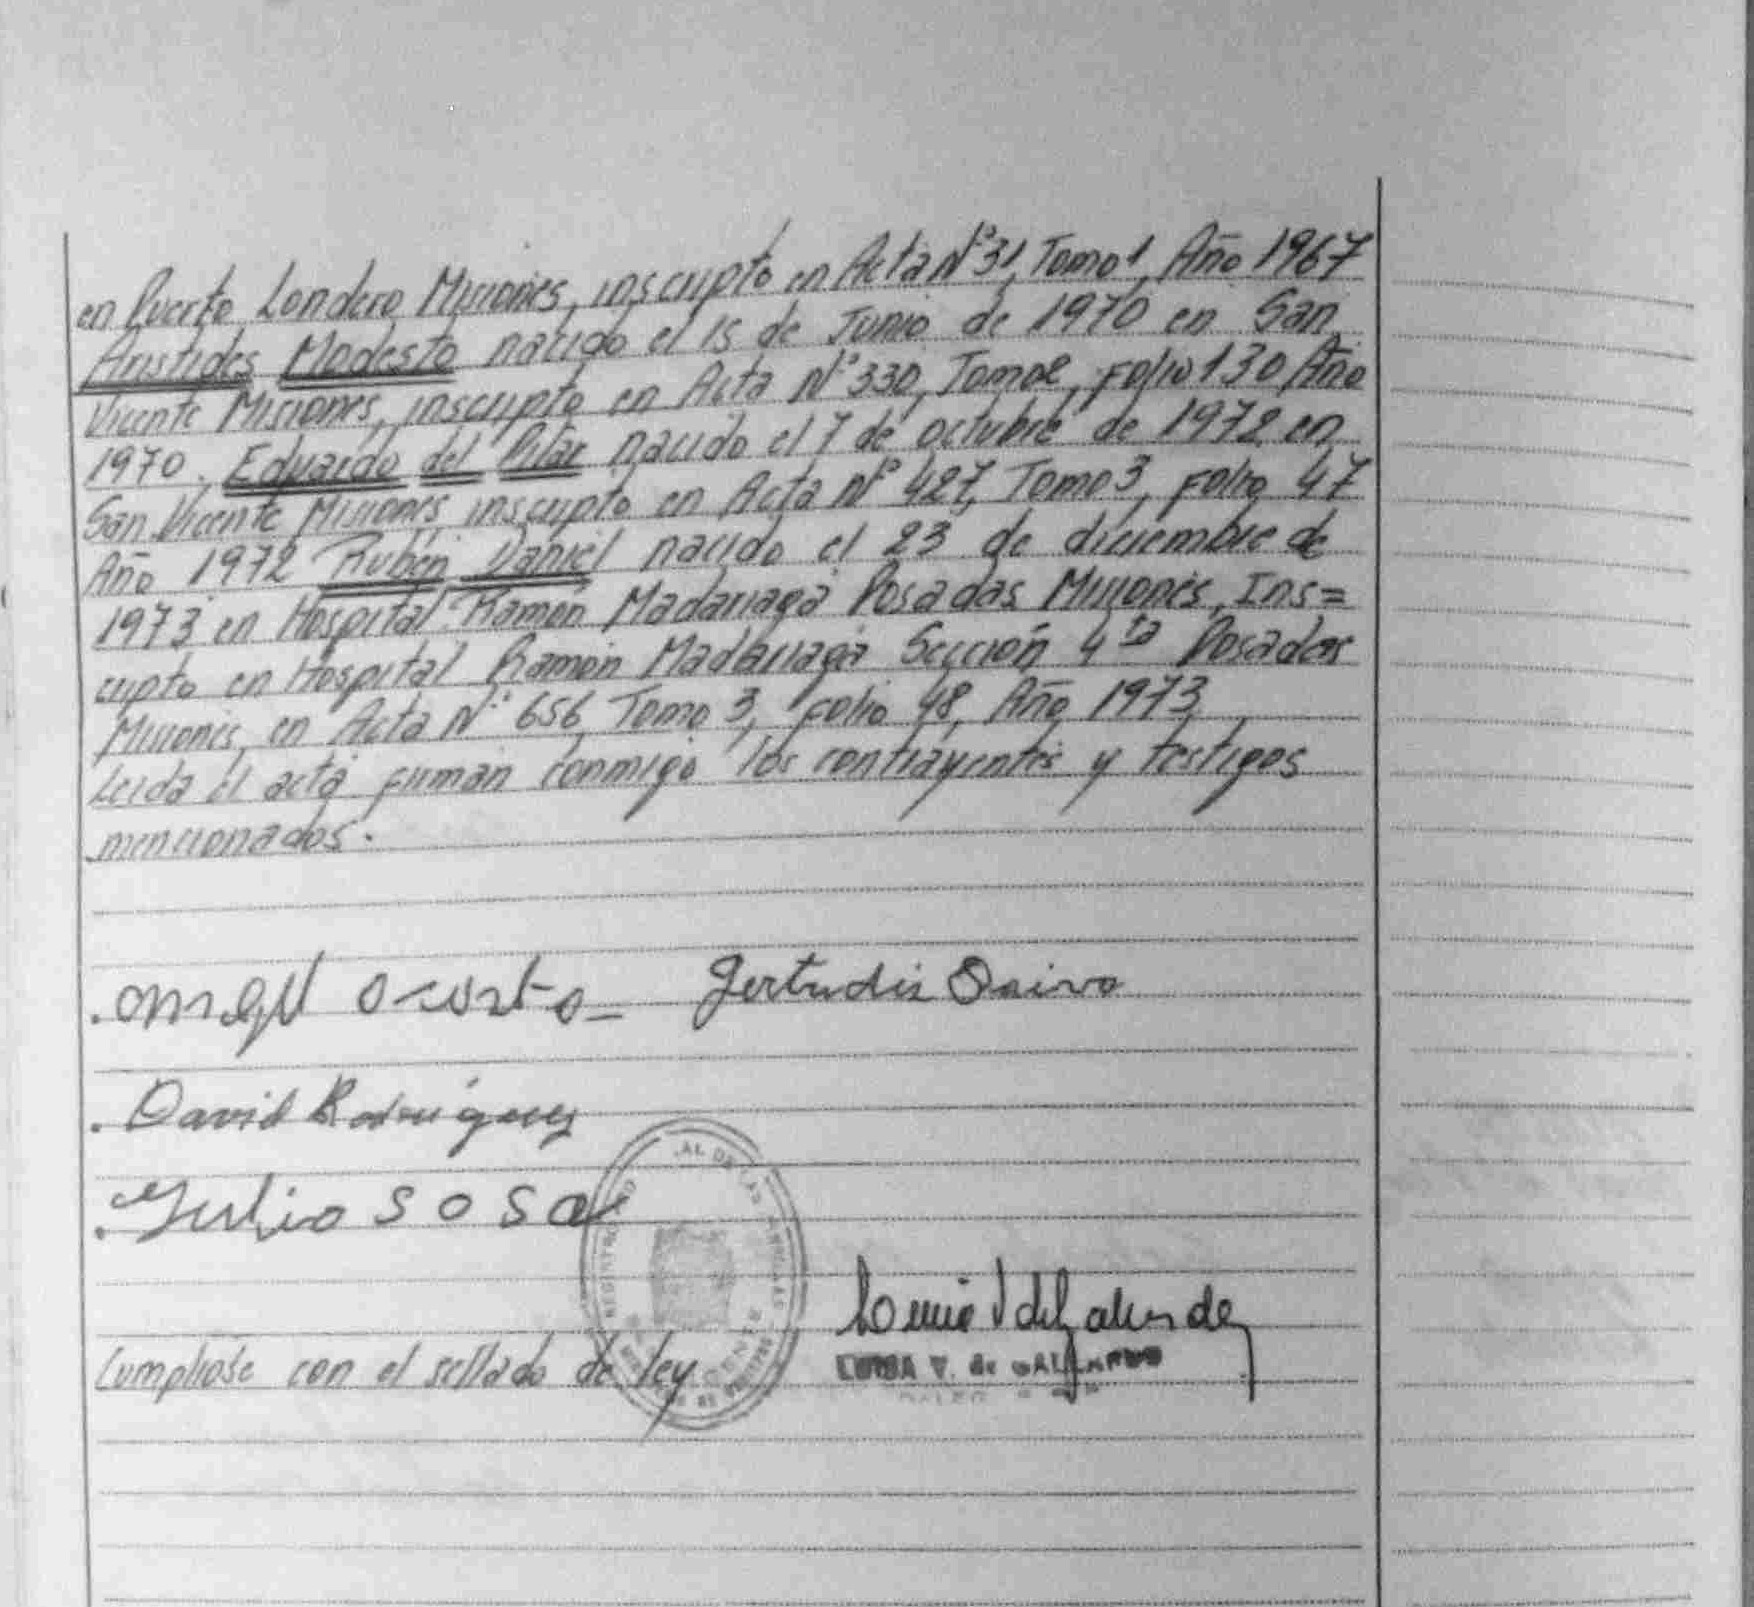 en Puerto Londero Misiones, inscripto en Acta N° 31, Tomo 1, Año 1967
Aristides Modesto nacido el 15 de Junio de 1970 en San
Vicente Misiones, inscripto en Acta N° 330, Tomo 2, Folio 130 Año
1970. Eduardo del Pilar nacido el 7 de octubre de 1972 en
San Vicente Misiones inscripto en Acta N° 427, Tomo 3, Folio 47
Año 1972 Rubén Daniel nacido el 23 de diciembre de
1973 en Hospital Ramón Madariaga Posadas Misiones, Ins=
cripto en Hospital Ramón Madariaga Sección 4ta Posadas
Misiones, en Acta N° 656, Tomo 3, Folio 48, Año 1973
Leída el acta firman conmigo los contrayentes y testigos
mencionados.
Gertrudis
David Rodriguez
Julio SOSA
REGISTRO AL DE LAS
V. de
Cumpliose con el sellado de ley